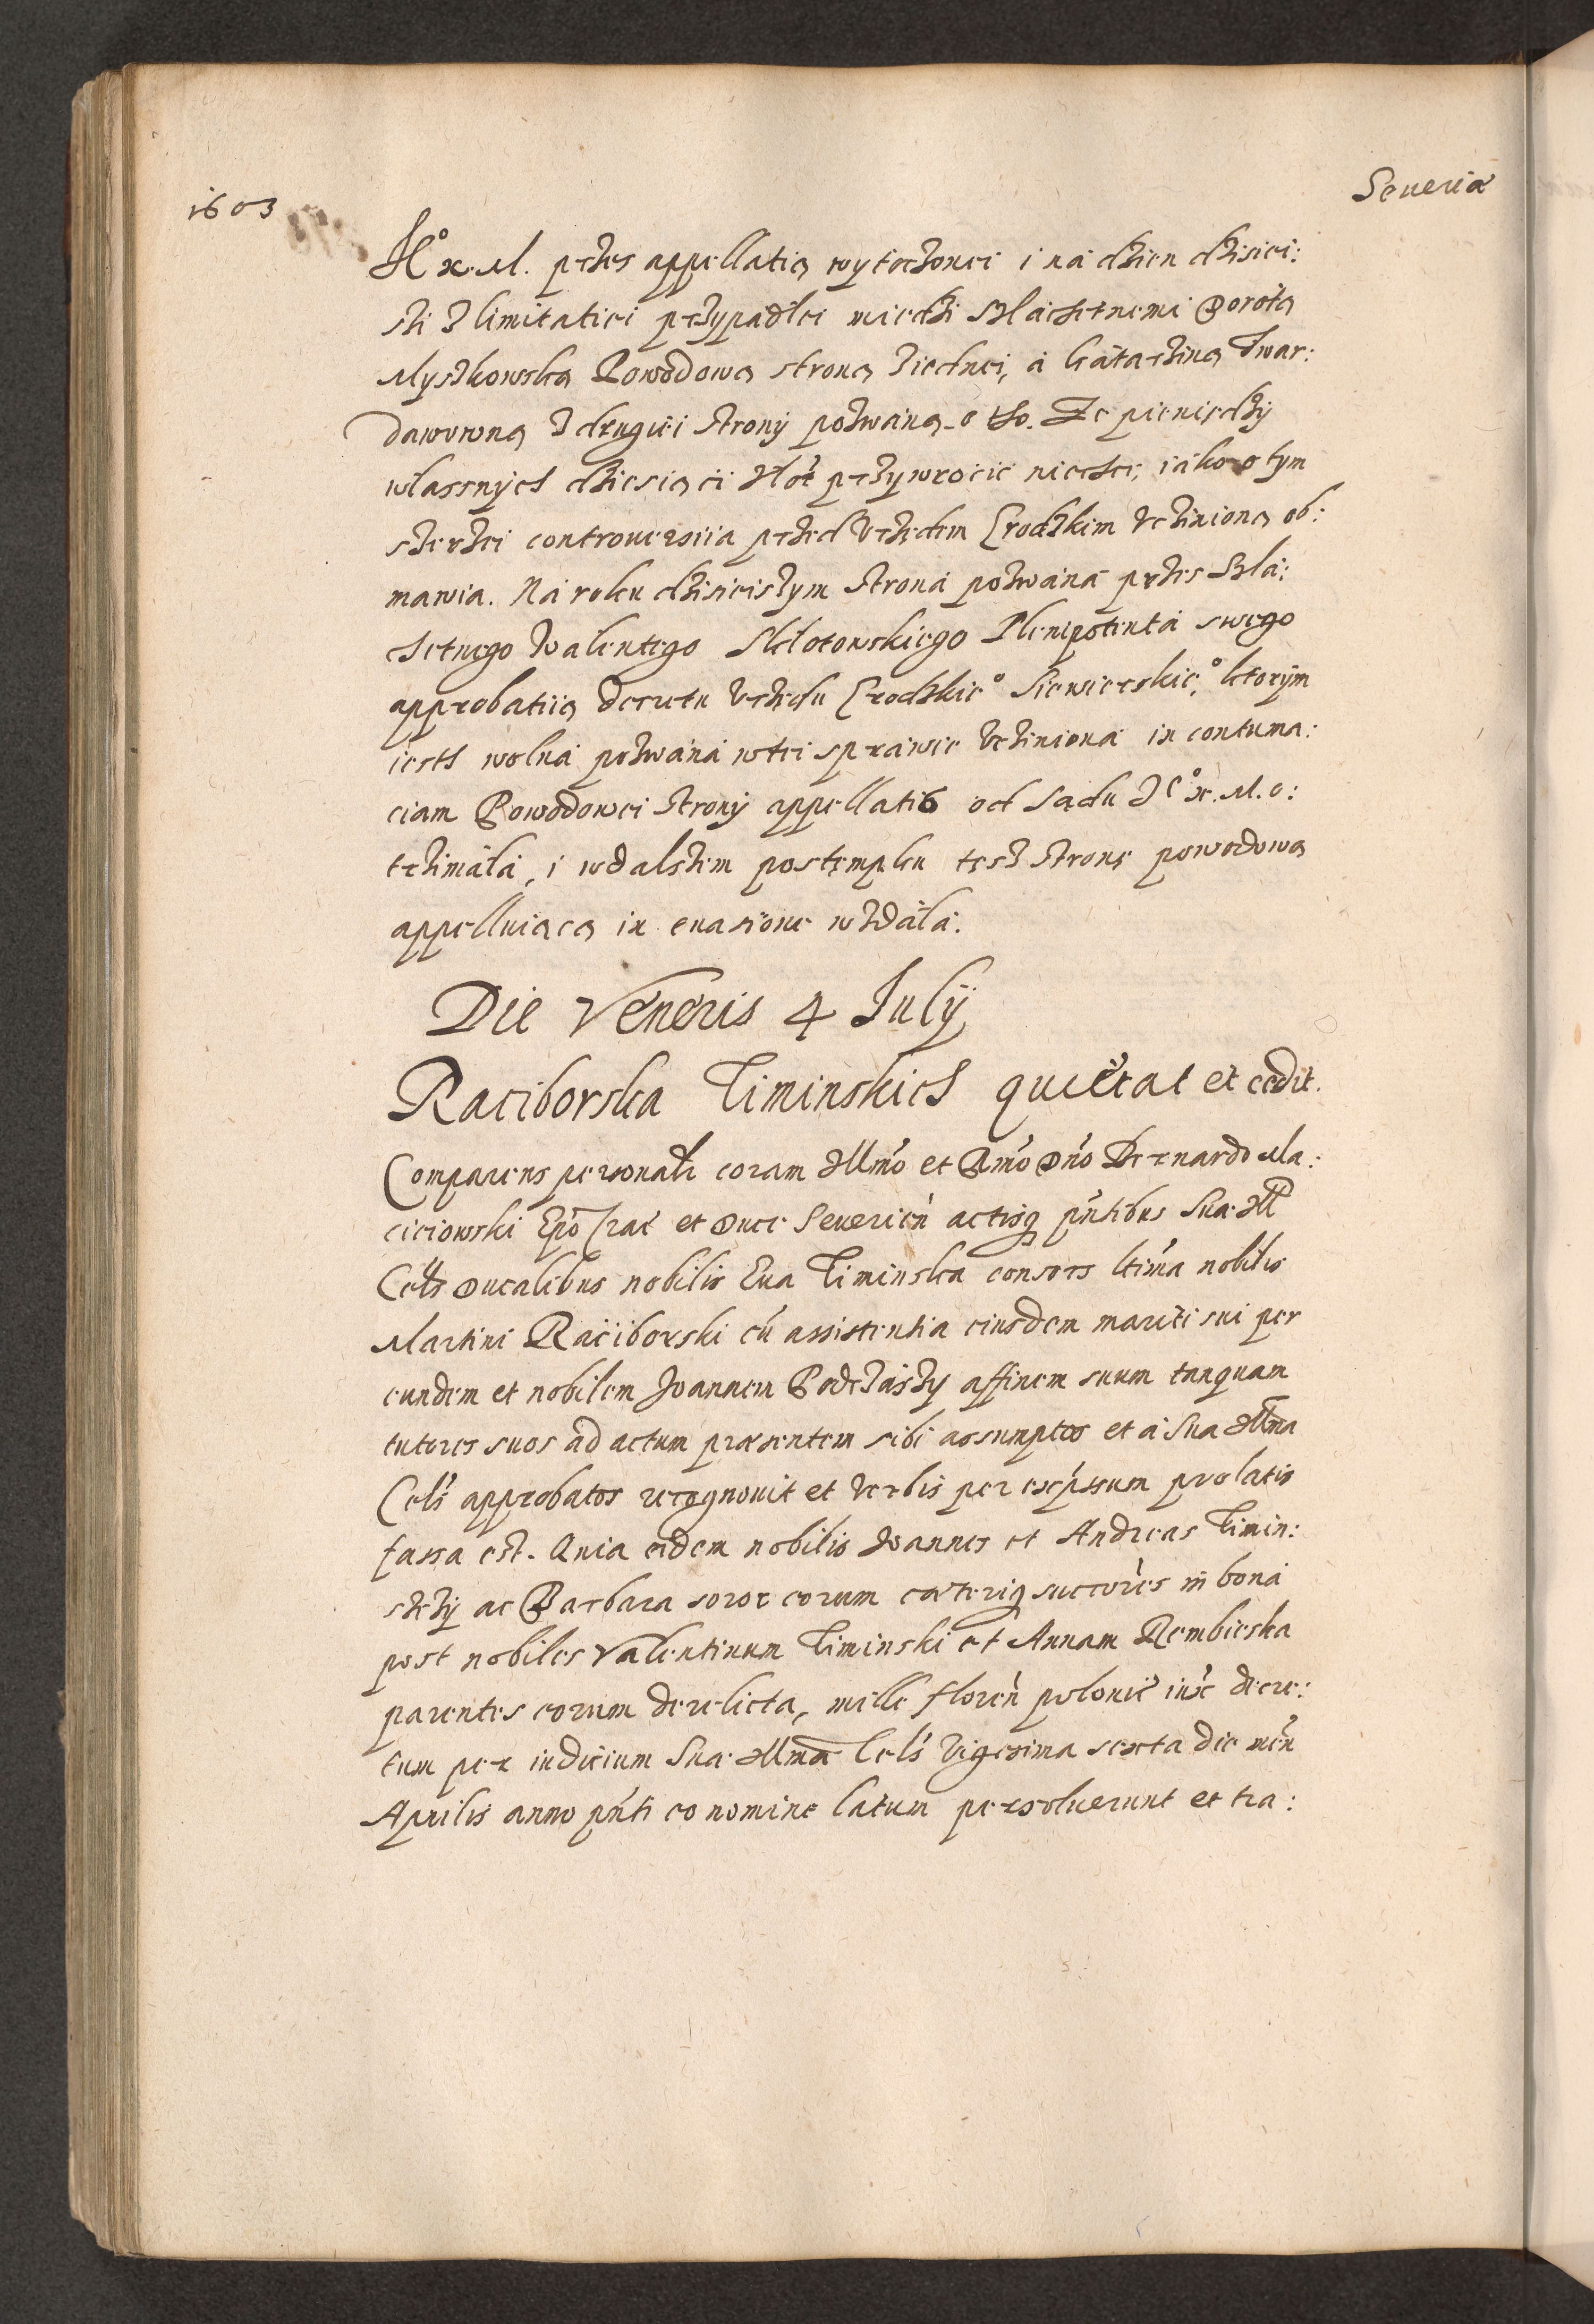 1603
Severiæ
Je° x. M. przes appellatią wytoczonei i ná dzien dzisiei:
szi z limitatiei przypadłei miedzi Szlachetnemi Dorotą
Myszkowską Powodową stroną ziednei, á Kátarziną Twar:
dawowną z drugiei strony pozwáną o tho. Ze pieniedzy
własnych dziesiąci złót przywrocic niechce, iáko o tym
szerzei controversiia przed Vrzedem Grodzkim Vcziniona ob:
mawia. Ná roku dzisieiszym strona pozwána przes Szla:
chetnego Walentego Sklotowskiego Plenipotentá swego
approbatiią decretu Vrzedu Grodzkie° Siewierskie°, ktorym
iesth wolná pozwána w tei spráwie Vczinioná in contuma:
ciam Powodowei strony appellatię od Sądu Je° x. M. o:
trzimáłá, i w dalszem postempku tesz stronę powodową
appelluiącą in euasione wzdáłá.
Die Veneris 4 July
Raciborska Ziminskich quietat et cedit.
Comparens personalr coram Illmo et Rmo Dno Bernardo Ma:
cieiowski Epo Crac et Duce Severien actisq pntibus Suæ Ill
Cels Ducalibus nobilis Eva Ziminska consors ltima nobilis
Martini Raciborski cu assistentia eiusdem mariti sui per
eundem et nobilem Joannem Podczászy affinem suum tanquam
tutores suos ad actum præsentem sibi assumptos et á Sua Illma
Cels approbatos recognovit et verbis per expssum prolatis
fassa est. Quia eidem nobilis Joannes et Andreas Zimin:
szczy ac Barbara soror eorum cæteriq succores in bona
post nobiles Valentinum Ziminski et Annam Rembieska
parentes eorum derelicta, mille floren polonic iuxe decre:
tum per iudicium Suæ Illmæ Cels Vigesima sexta die men
Aprilis anno pnti eo nomine latum persoluerunt et tra: